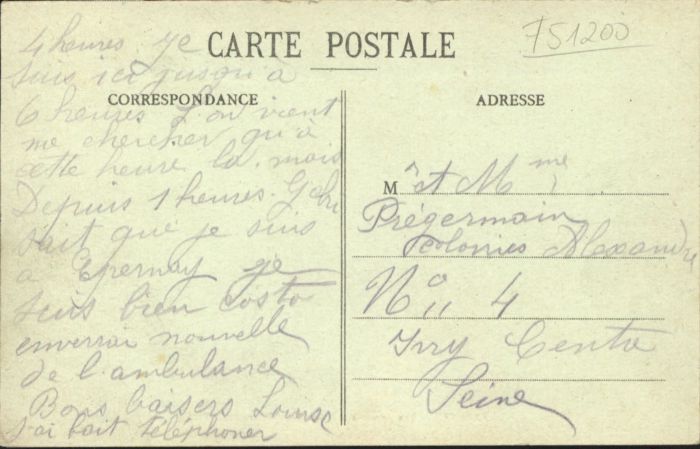 CARTE POSTALE
751200
CORRESPONDANCE
ADRESSE
4 heures. je
suis ici jusqu'à
6 heures L'on vient
me chercher qu'à
cette heure la. mais
Depuis 1 heures.
sait que je suis
à Epernay je
suis bien
enverrai nouvelle
de l'ambulance
Bons baisers Louise
j'ai fait téléphoner
Mr et Mme
Prégermain
colonies Alexandre
No 4
Ivry Centre
Seine